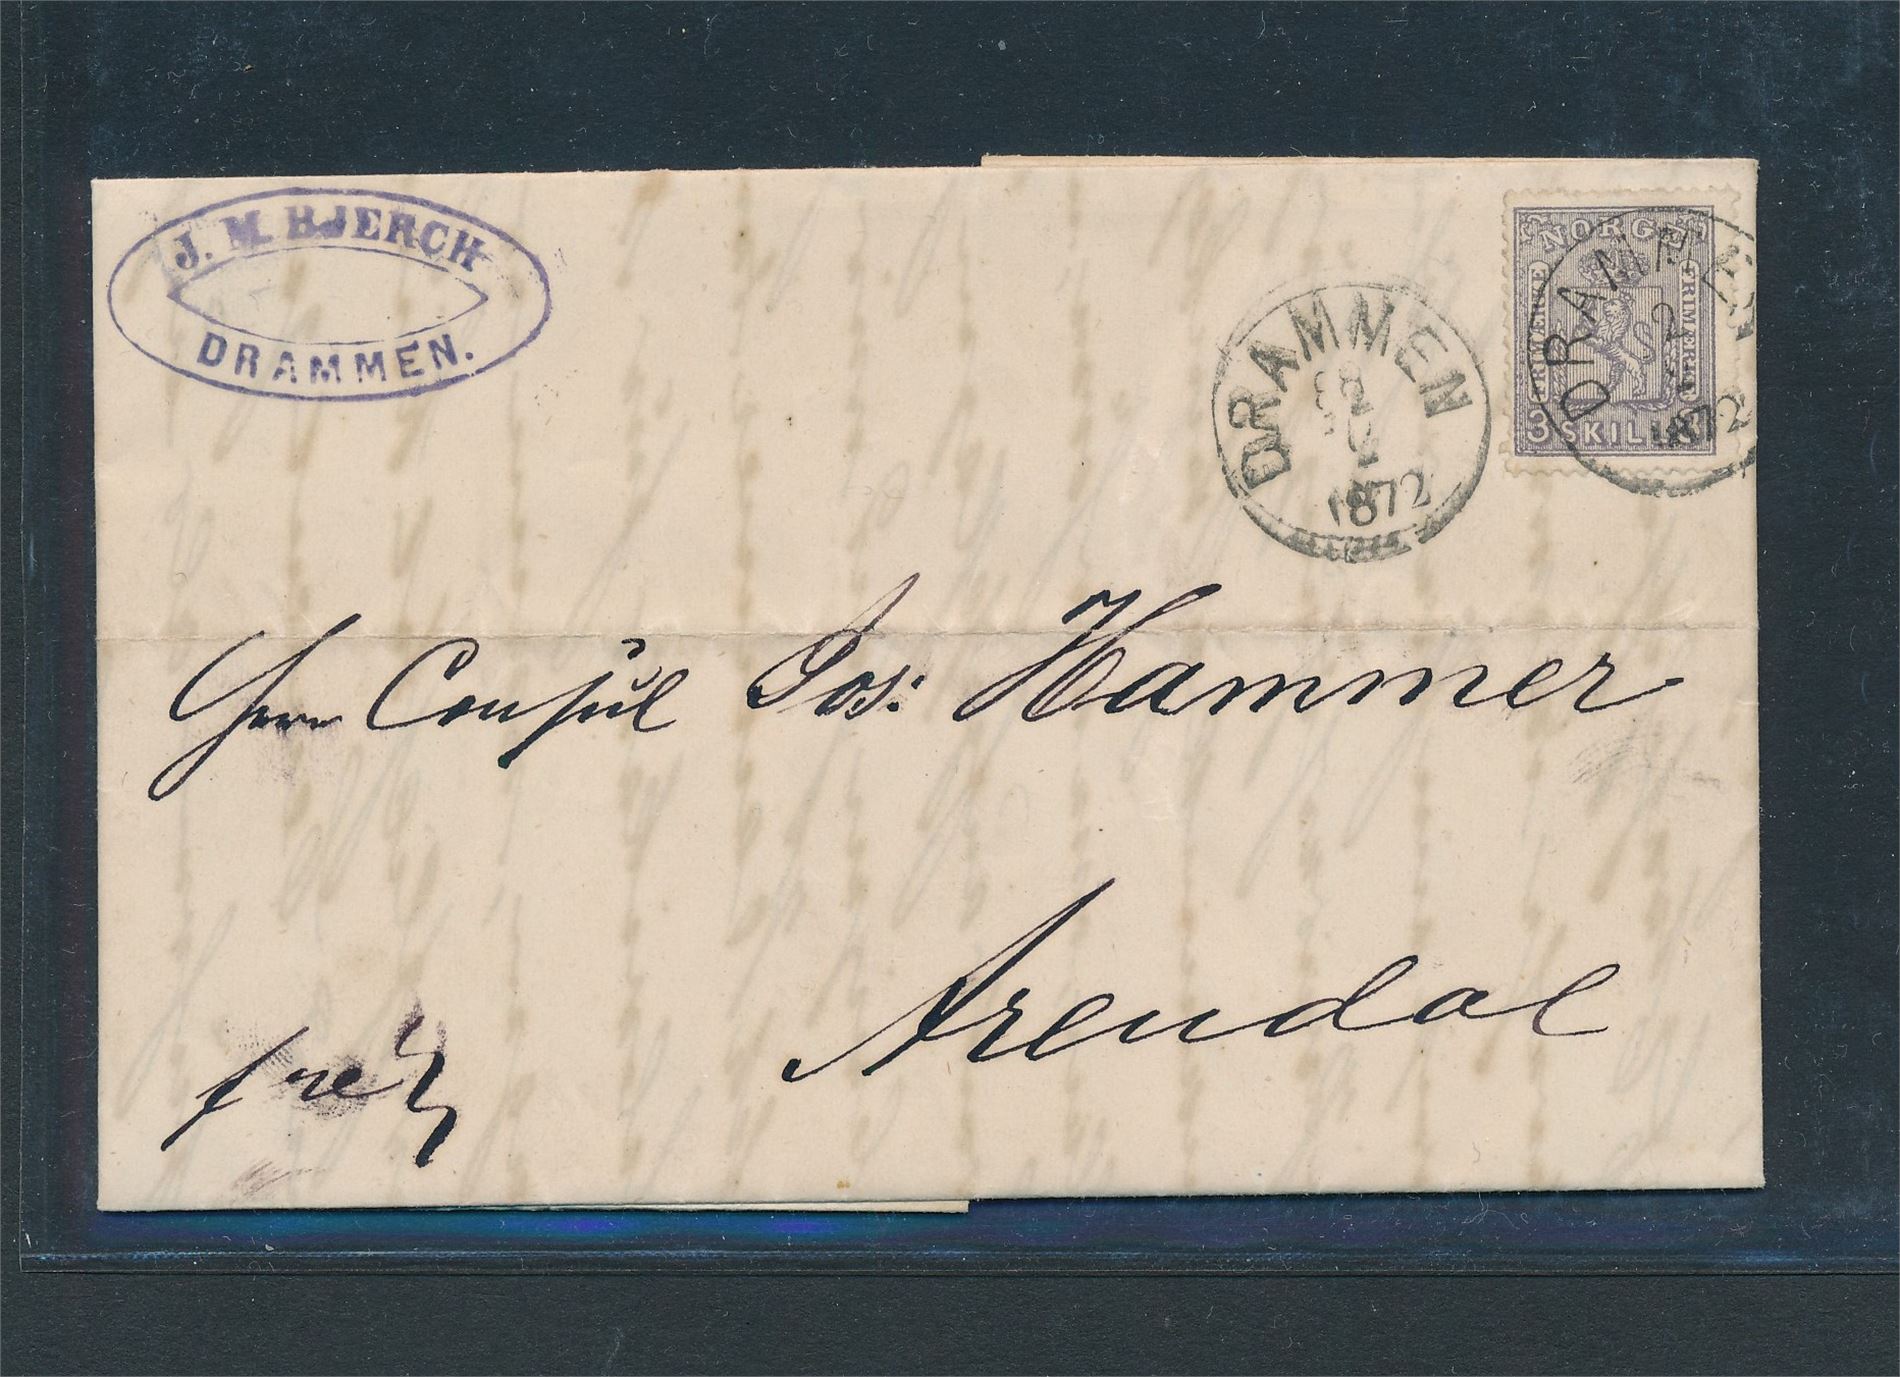 J. M. BJERCH
DRAMMEN.
DRAMMEN
1872
NORGE
FRIMÆRKE
FRIMÆRKE
3 SKILL
DRAMMEN
2
1872
Herr Consul Jos: Hammer
Arendal